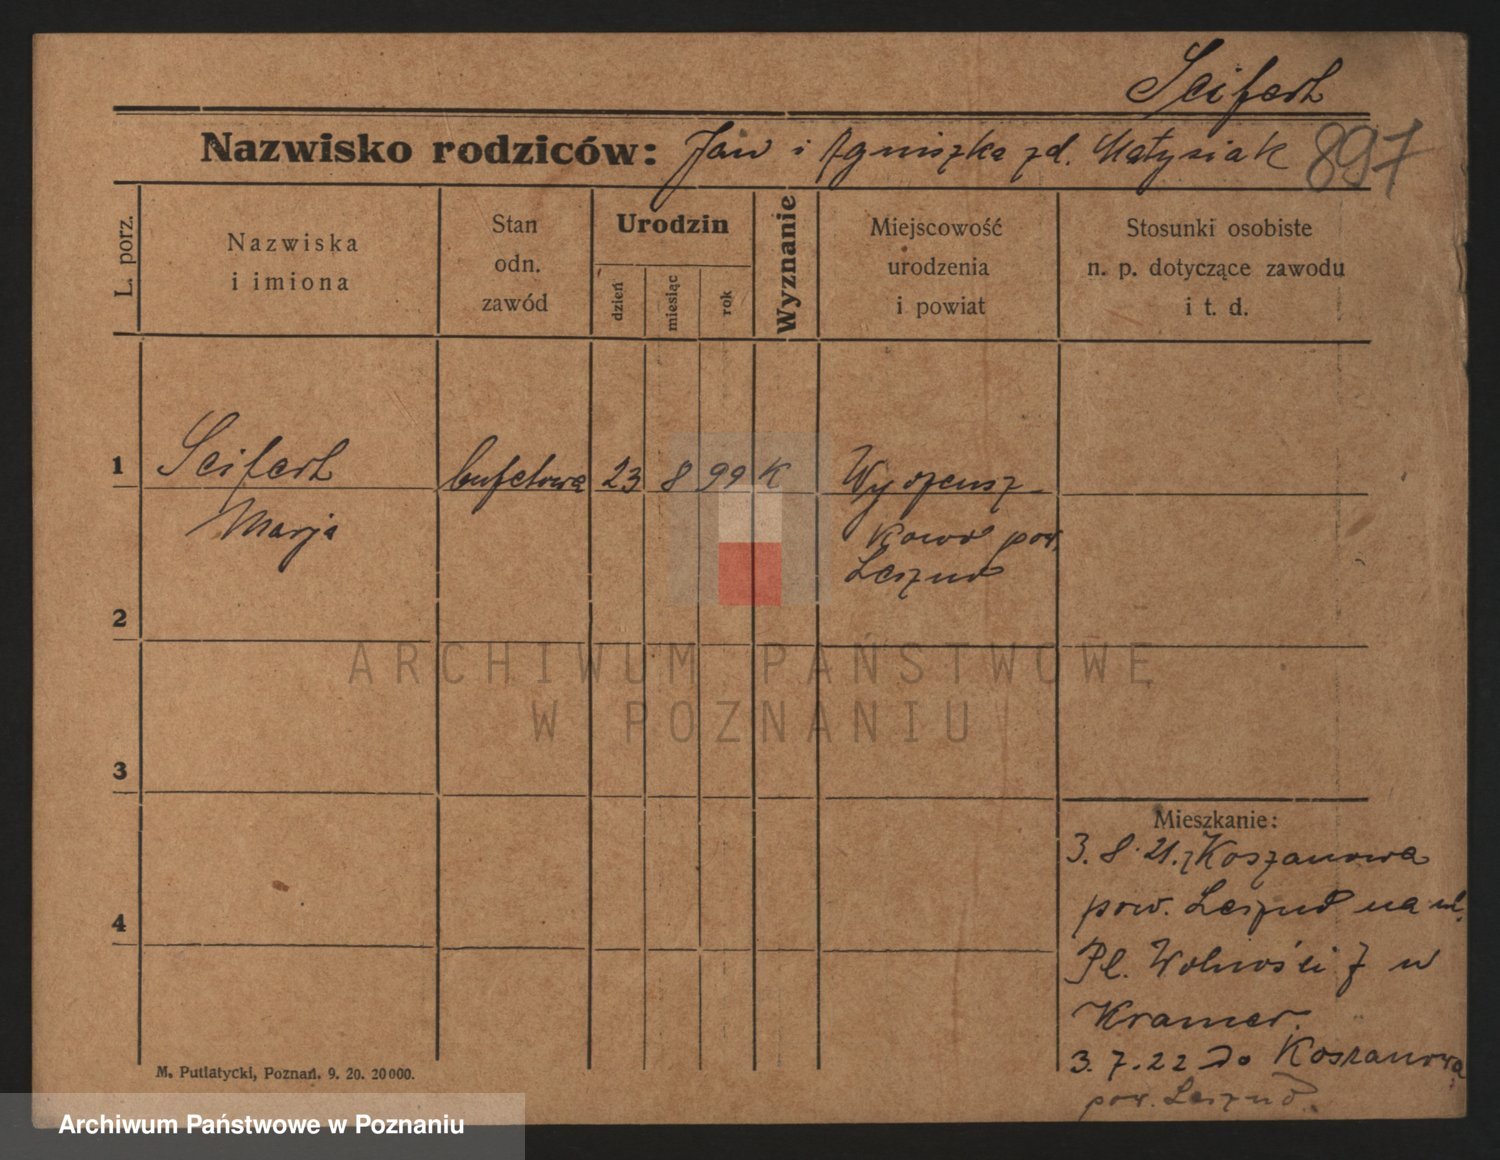 Seifert
Nazwisko rodziców: Jan i Agniszka zd. Matysiak 897
L. porz.
Nazwiska
i imiona
Stan
odn.
zawód
Urodzin
dzień
miesiąc
rok
Wyznanie
Miejscowość
urodzenia
i powiat
Stosunki osobiste
n. p. dotyczące zawodu
i t. d.
1 Seifert bufetowa 23 8 99 K
Marja
kowo pow.
Leszno
2
3
4
Mieszkanie:
3. 8. 21. z Koszanowa
pow. Leszno na ul.
Pl. Wolności 7 u
Kramer.
3. 7. 22 do Koszanowa
pow. Leszno.
M. Putiatycki, Poznań. 9. 20. 20000.
ARCHIWUM PAŃSTWOWE
W POZNANIU
Archiwum Państwowe w Poznaniu